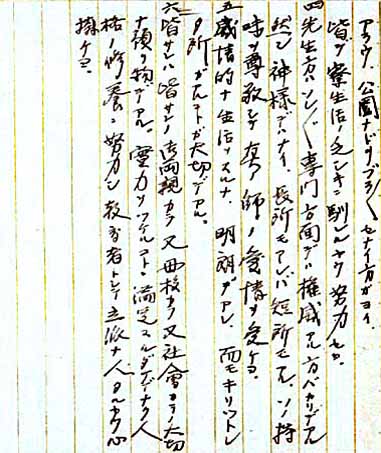 アラウ、公園ナドヲブラ〱セナイ方ガヨイ、
皆ガ寮生活ノ
四先生方ハソレ〱専門方面デハ権威アル方バカリデアル
然シ神様デハナイ、長所モアレバ短所モアル、ソノ特
ヲ尊敬シテ
五感情的ナ生活ヲスルナ、明朗デアレ、而モキリットシ
タ所ガアルコトガ大切デアル。
六皆サンハ皆サンノ御両親カラ又母校カラ又社會カラ大切
ナ預リ物デアル。実力ヲツケルコトニ満足スルダケデナク人
格ノ修養ニ努力シ教育者トシテ立派ナ人タルヤウ心
掛ケヨ。